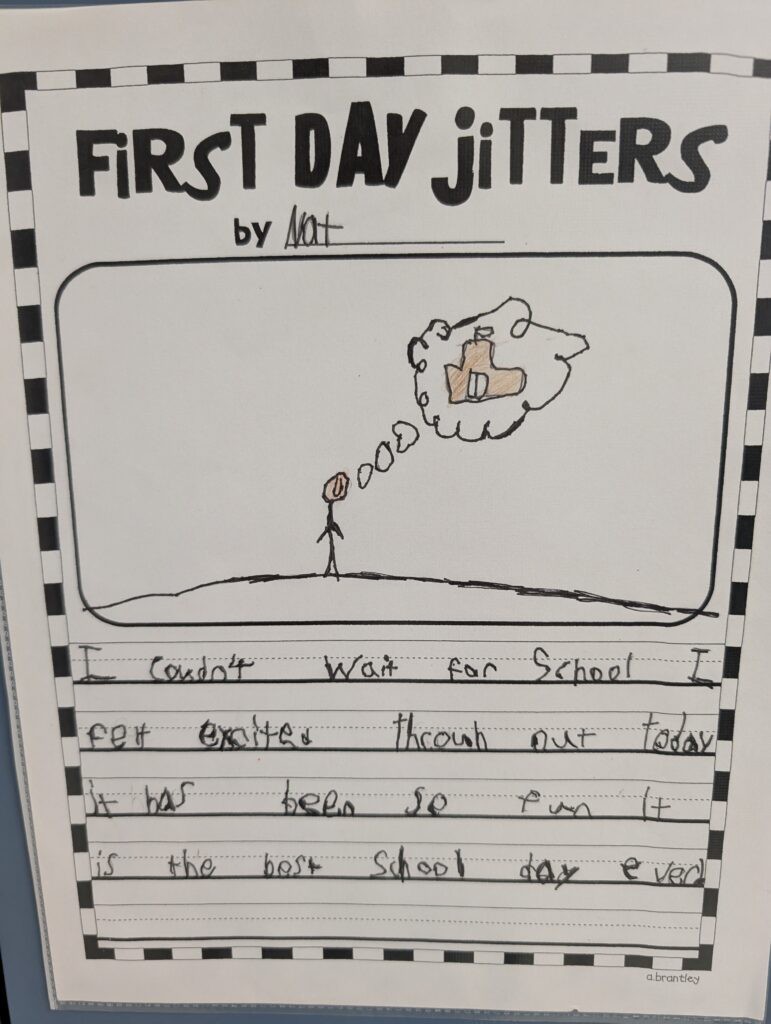 FiRST DAY JiTTERS
by Nat
I coudn't wait for School I
felt excited throuh out today
it has been so fun It
is the best School day ever
a.brantley